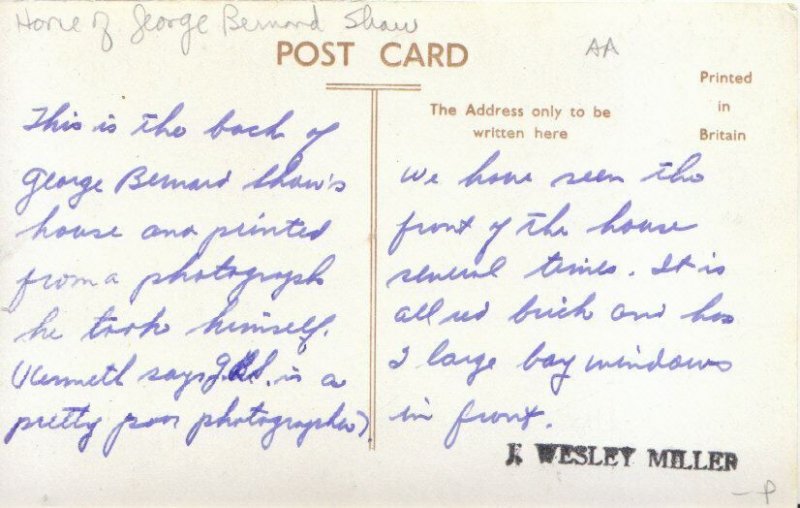 Home of George Bernard Shaw
POST CARD
AA
Printed
in
Britain
The Address only to be
written here
This is the back of
George Bernard Shaw's
house and printed
from a photograph
he took himself.
(Kenneth says G.B.S. is a
pretty poor photographer)
We have seen the
front of the house
several times. It is
all red brick and has
2 large bay windows
in front.
J. WESLEY MILLER
- P